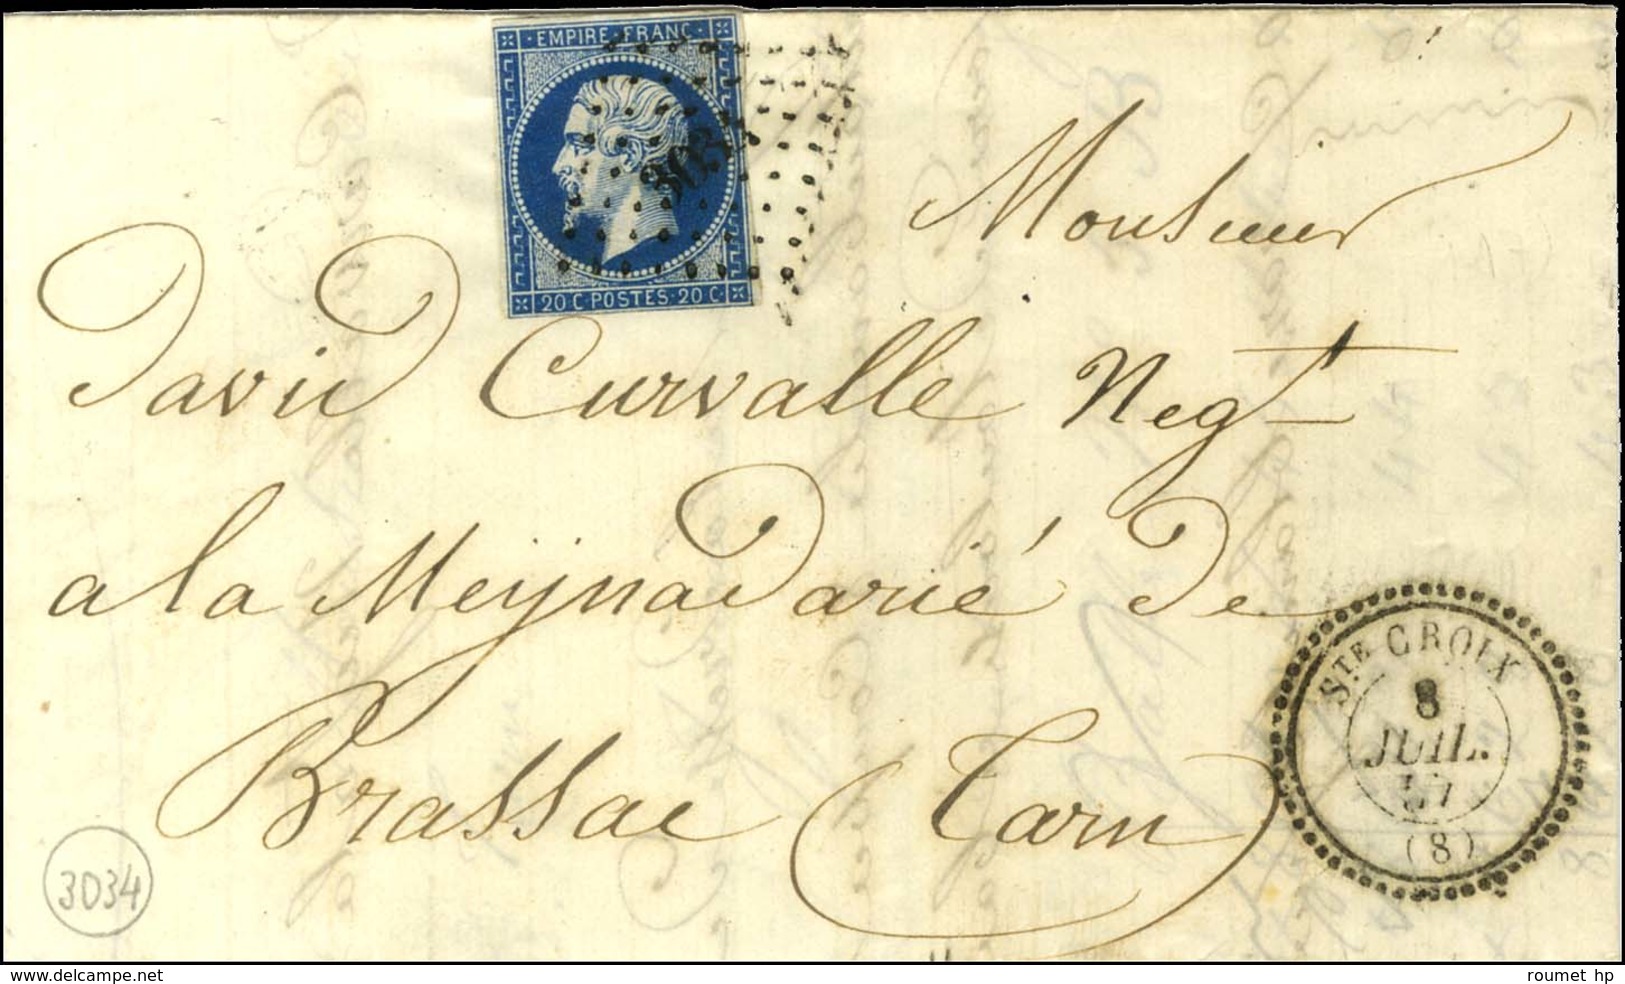 EMPIRE FRANC
3034
20 C POSTES 20 C
Monsieur
David Curvalle Negt
a la Meynadarié de
Brassac (Tarn)
STE CROIX
8
JUIL.
57
(8)
3034
www.delcampe.net
roumet hp